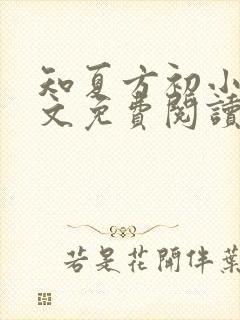 知夏方初小
文免費閱讀
若是花開伴葉